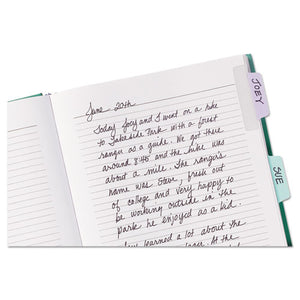 June 20th
JOEY
Today Joey and I went on a hike
to Lakeside Park with a forest
ranger as a guide. We got there
around 8:45 and the hike was
about a mile. The ranger's
name was Steve, fresh out
of college and very happy to
be working outside in the
park he enjoyed as a kid.
SUE
learned a lot about the
At the